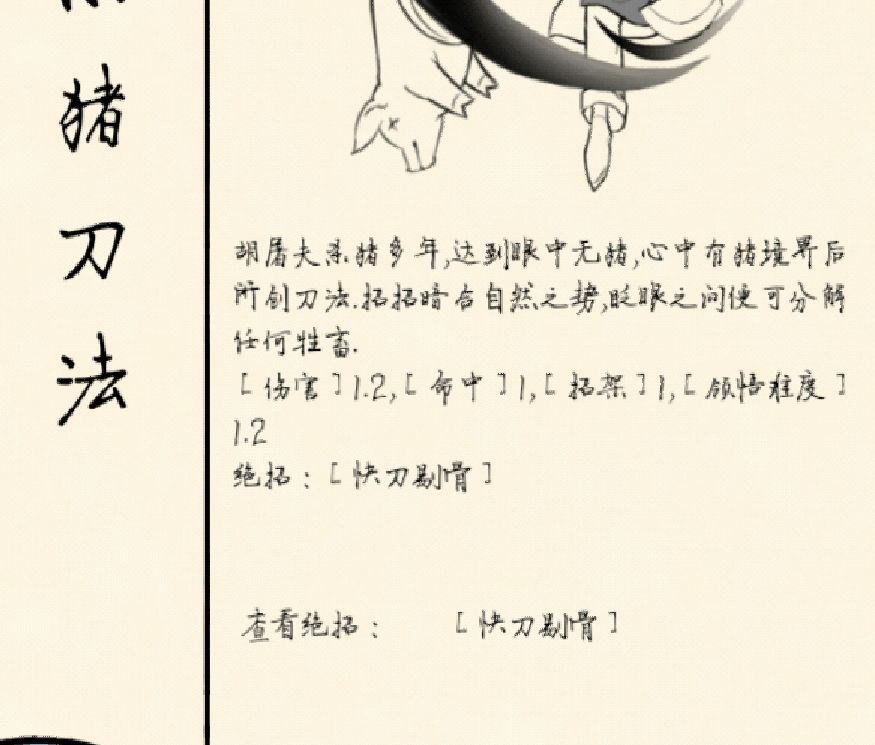 猪刀法
胡屠夫杀猪多年,达到眼中无猪,心中有猪境界后
所创刀法.招招暗合自然之势,眨眼之间便可分解
任何牲畜.
[伤害]1.2,[命中]1,[招架]1,[领悟难度]
1.2
绝招:[快刀剔骨]
查看绝招: [快刀剔骨]